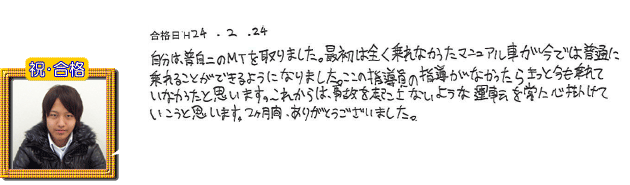 合格日 H24.2.24
自分は普自二のMTを取りました。最初は全く乗れなかったマニュアル車が今では普通に
乗れることができるようになりました。ここの指導員の指導がなかったらきっと今も乗れて
いなかろたと思います。これからは、事故を起こさないような運転を常に心掛けて
いこうと思います。2ヶ月間、ありがとうございました。
祝・合格